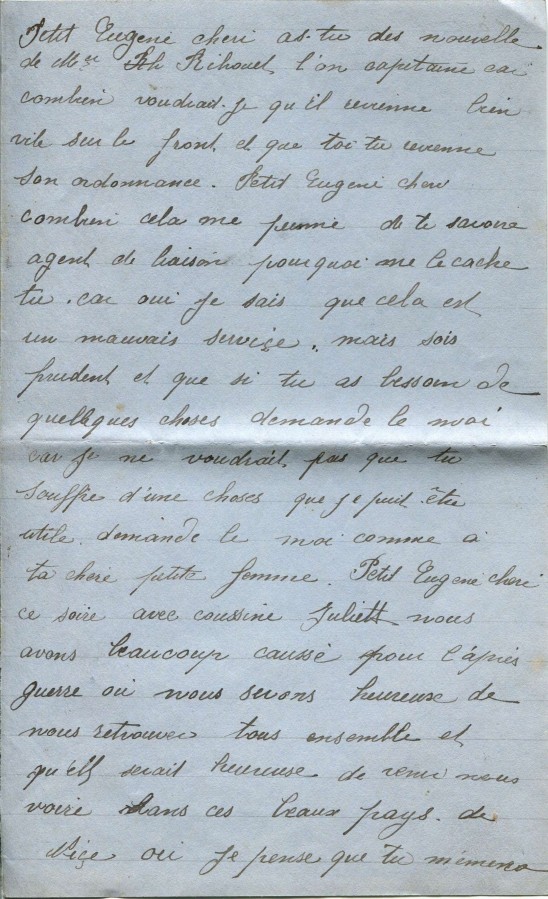 Petit Eugene cheri as-tu des nouvelle
de Mr Rihouet l'on capitaine car
combien voudrait-je qu'il revienne bien
vite sur le front et que toi tu revenne
son ordonnance. Petit Eugene cheri
combien cela me peinne de te savoire
agent de liaison pourquoi me le cache
tu. car oui je sais que cela est
un mauvais serviçe. mais sois
prudent et que si tu as bessoin de
quelleques choses demande le moi
car je ne voudrait pas que tu
souffre d'une choses que je puit être
utile. demande le moi comme a
ta chere petite femme. Petit Eugene cheri
ce soire avec coussine Juliett nous
avons beaucoup caussé pour l'àprés
guerre où nous serons heureuse de
nous retrouver tous ensemble et
qu'ell serait heureuse de venir nous
voire dans ces beaux pays. de
Niçe où je pense que tu m'emmena